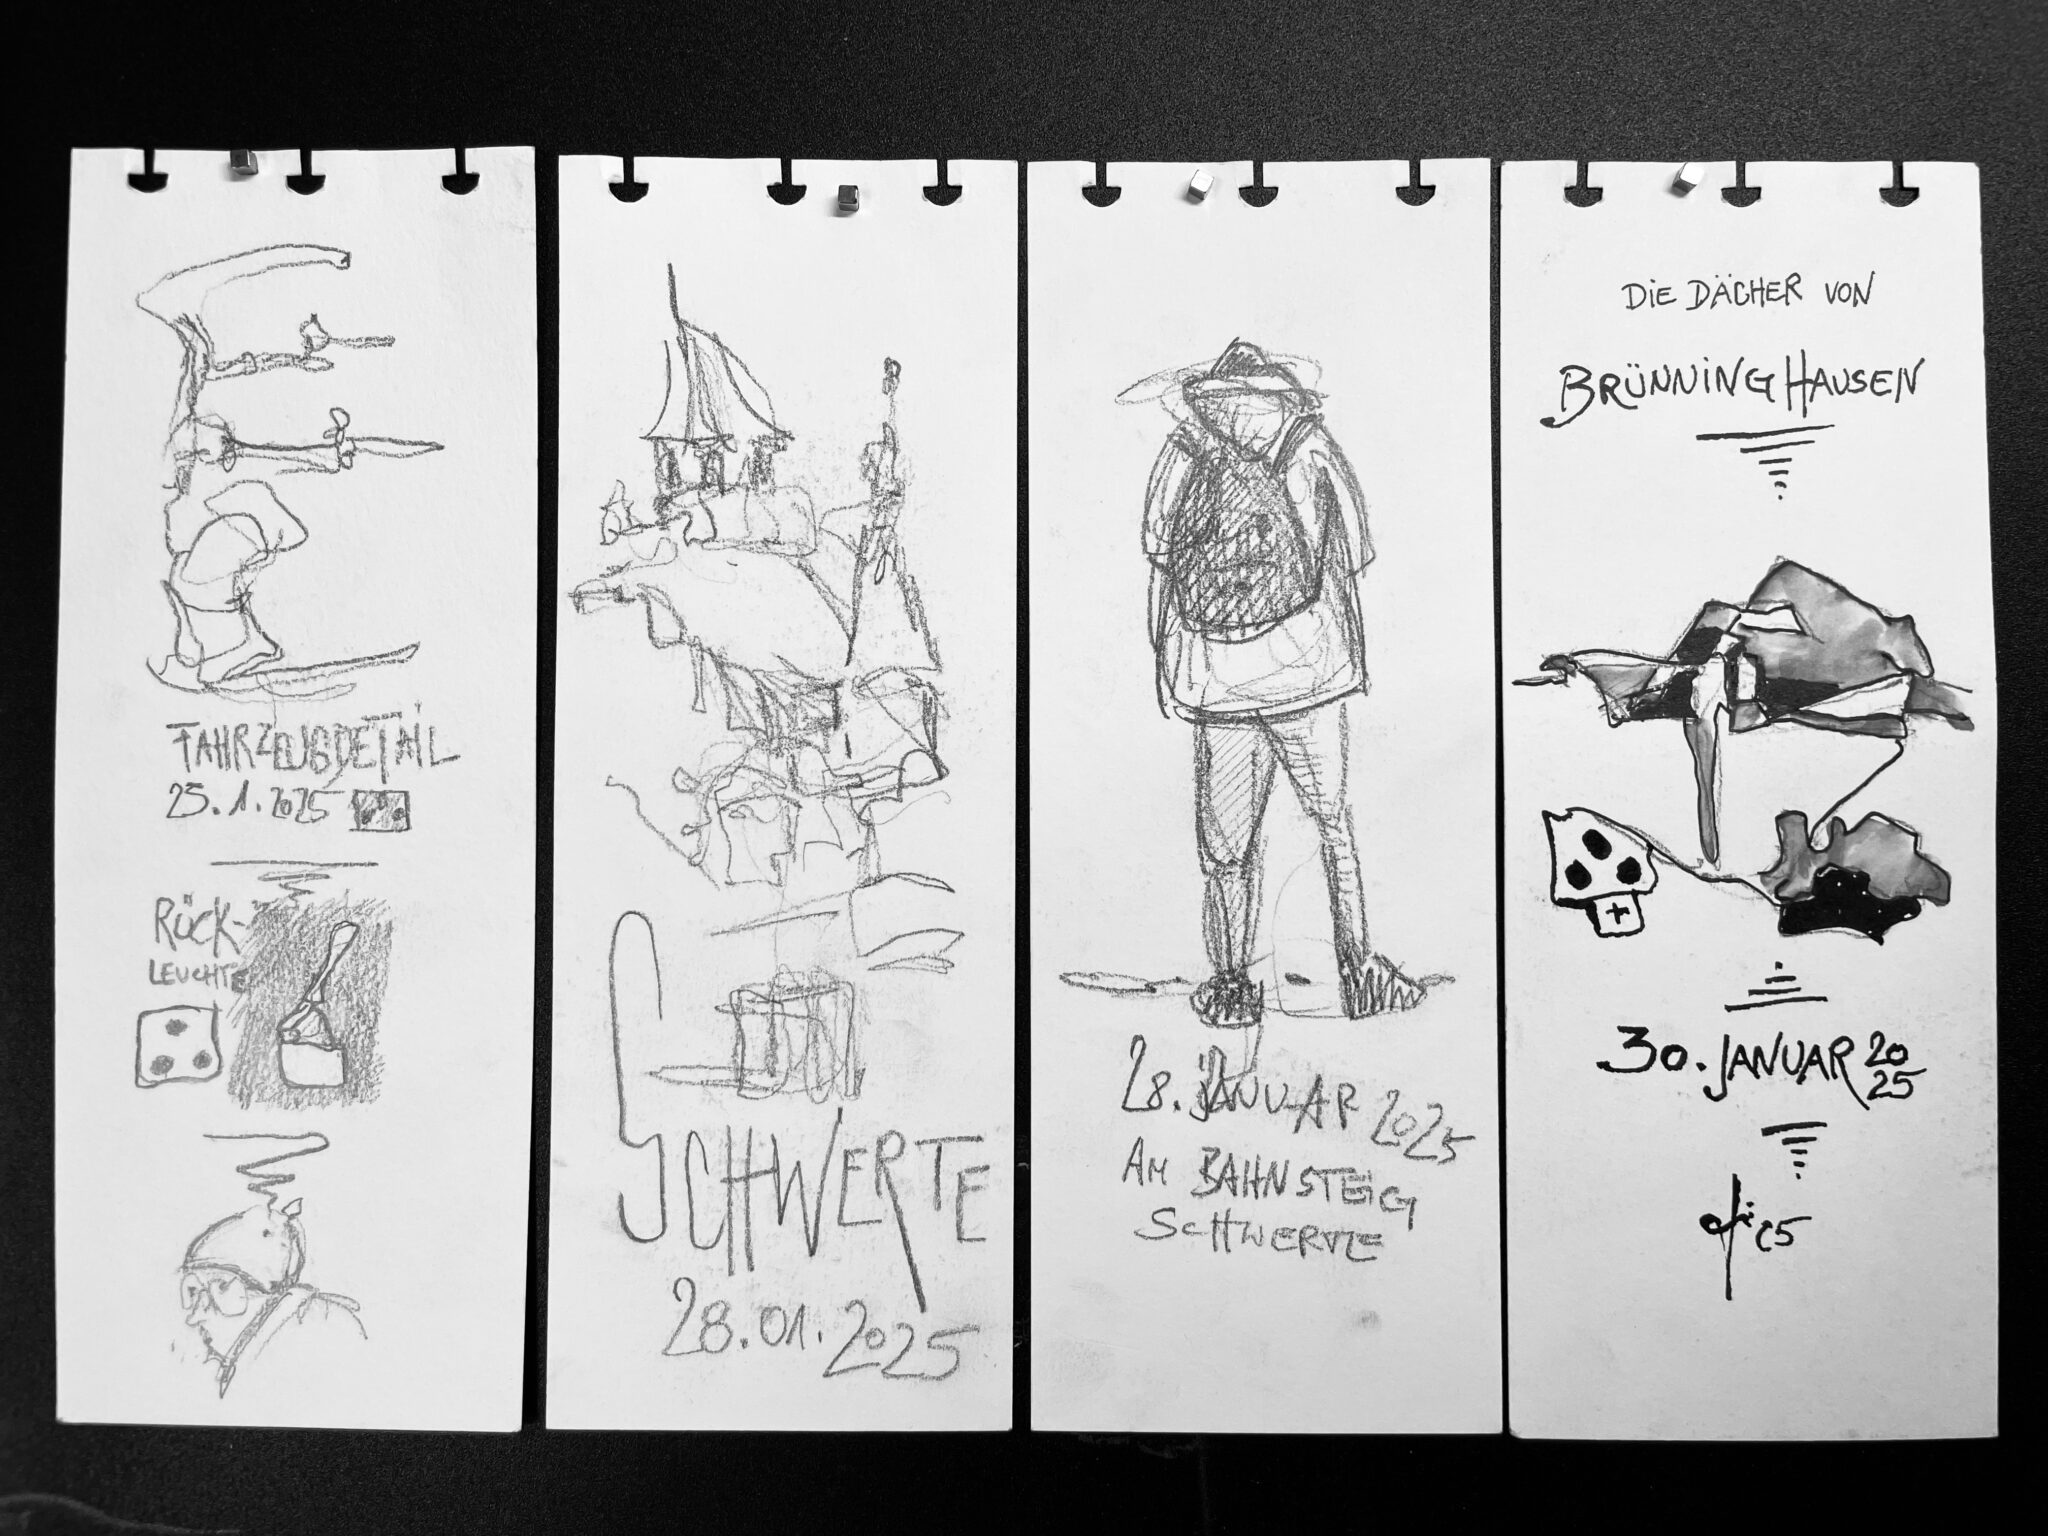 FAHRZEUGDETAIL
25.1.2025
RÜCK-
LEUCHTE
SCHWERTE
28.01.2025
28. JANUAR 2025
AM BAHNSTEIG
SCHWERTE
DIE DÄCHER VON
BRÜNNINGHAUSEN
30. JANUAR 2025
25